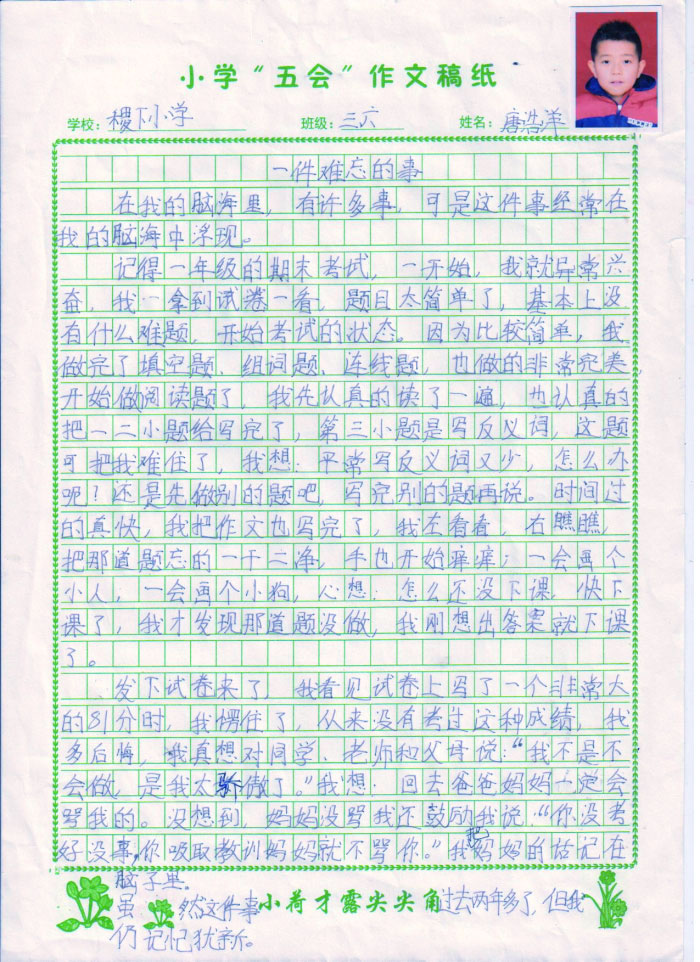 小学“五会”作文稿纸
学校：稷下小学 班级：三六 姓名：唐浩洋
一件难忘的事
在我的脑海里，有许多事，可是这件事经常在
我的脑海中浮现。
记得一年级的期末考试，一开始，我就异常兴
奋，我一拿到试卷一看，题目太简单了，基本上没
有什么难题，开始考试的状态。因为比较简单，我
做完了填空题、组词题、连线题，也做的非常完美，
开始做阅读题了，我先认真的读了一遍，也认真的
把一二小题给写完了，第三小题是写反义词，这题
可把我难住了，我想：平常写反义词又少，怎么办
呢？还是先做别的题吧，写完别的题再说。时间过
的真快，我把作文也写完了，我左看看，右瞧瞧，
把那道题忘的一干二净，手也开始痒痒；一会画个
小人，一会画个小狗，心想：怎么还没下课，快下
课了，我才发现那道题没做，我刚想出答案就下课
了。
发下试卷来了，我看见试卷上写了一个非常大
的81分时，我愣住了，从来没有考过这种成绩，我
多后悔，我真想对同学、老师和父母说：“我不是不
会做，是我太骄傲了。”我想：回去爸爸妈妈一定会
骂我的。没想到，妈妈没骂我还鼓励我说：“你没考
好没事，你吸取教训妈妈就不骂你。”我把妈妈的话记在
脑子里。
虽然这件事过去两年多了，但我
仍记忆犹新。
小荷才露尖尖角